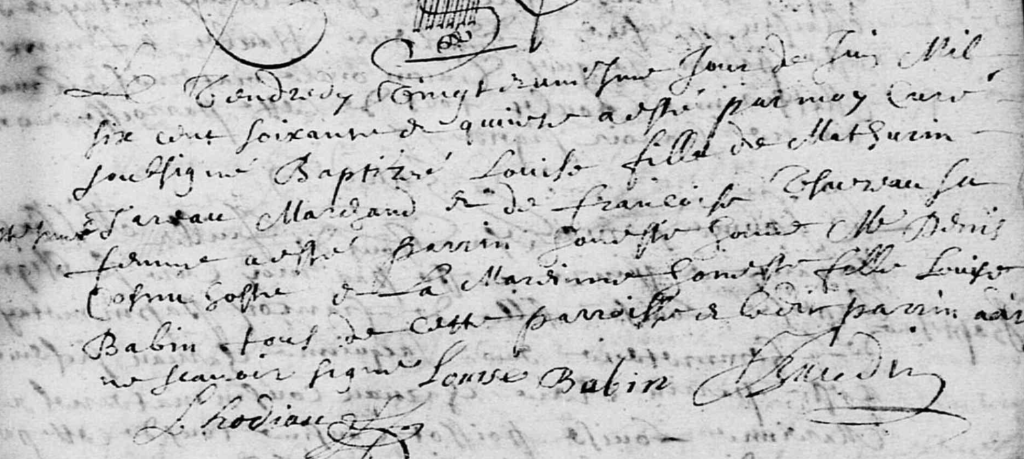 Le Vendredy Vingt jour de Juin Mil
six cent soixante & quinze a esté par moy Curé
soubsigné Baptizé Louise fille de Mathurin
Marchand & de françoise sa
femme a esté parrin honeste homme Me Denis
hoste & La Mareinne honeste fille Louise
Babin tous de cette parroisse & ledit parrin a dit
ne scavoir signé Louise Babin